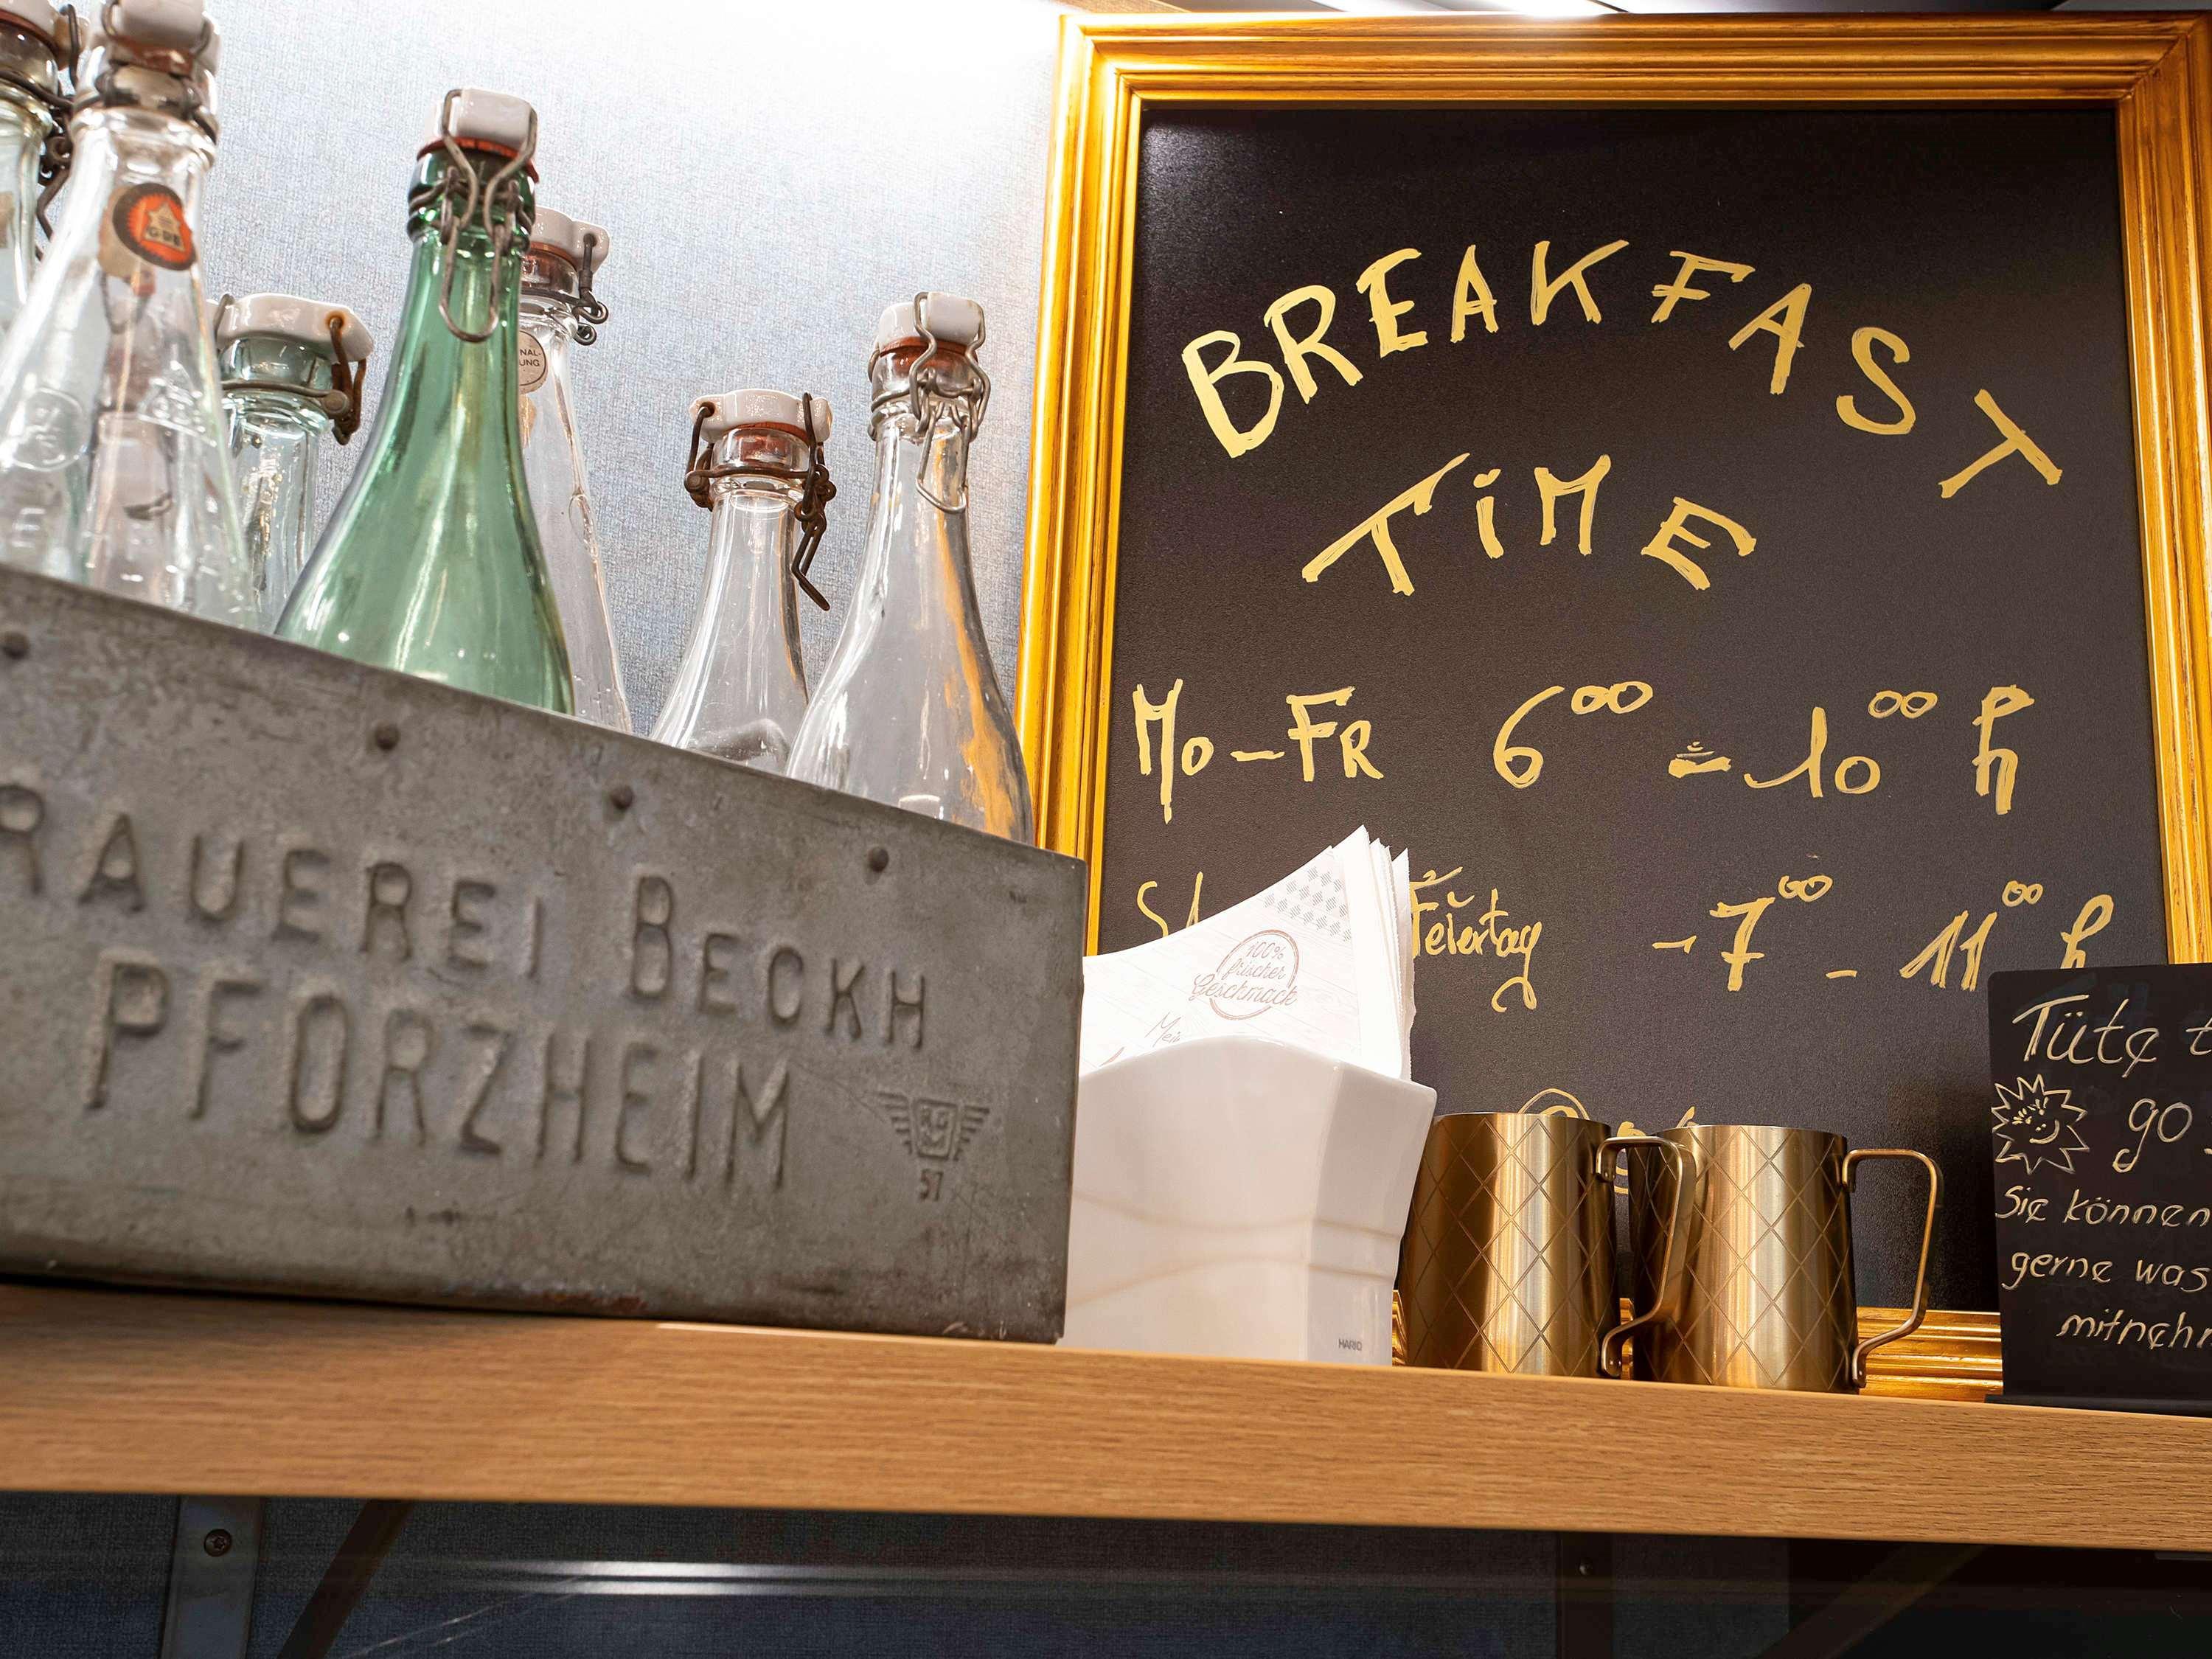 BREAKFAST
TiME
Mo-FR 6⁰⁰ - 10⁰⁰ h
Feiertag - 7⁰⁰ - 11⁰⁰ h
RAUEREI BECKH
PFORZHEIM
57
100%
frischer
Geschmack
HARIO
Tüte t
go
Sie können
gerne was
mitnehm
G·D·E
NAL-
UNG